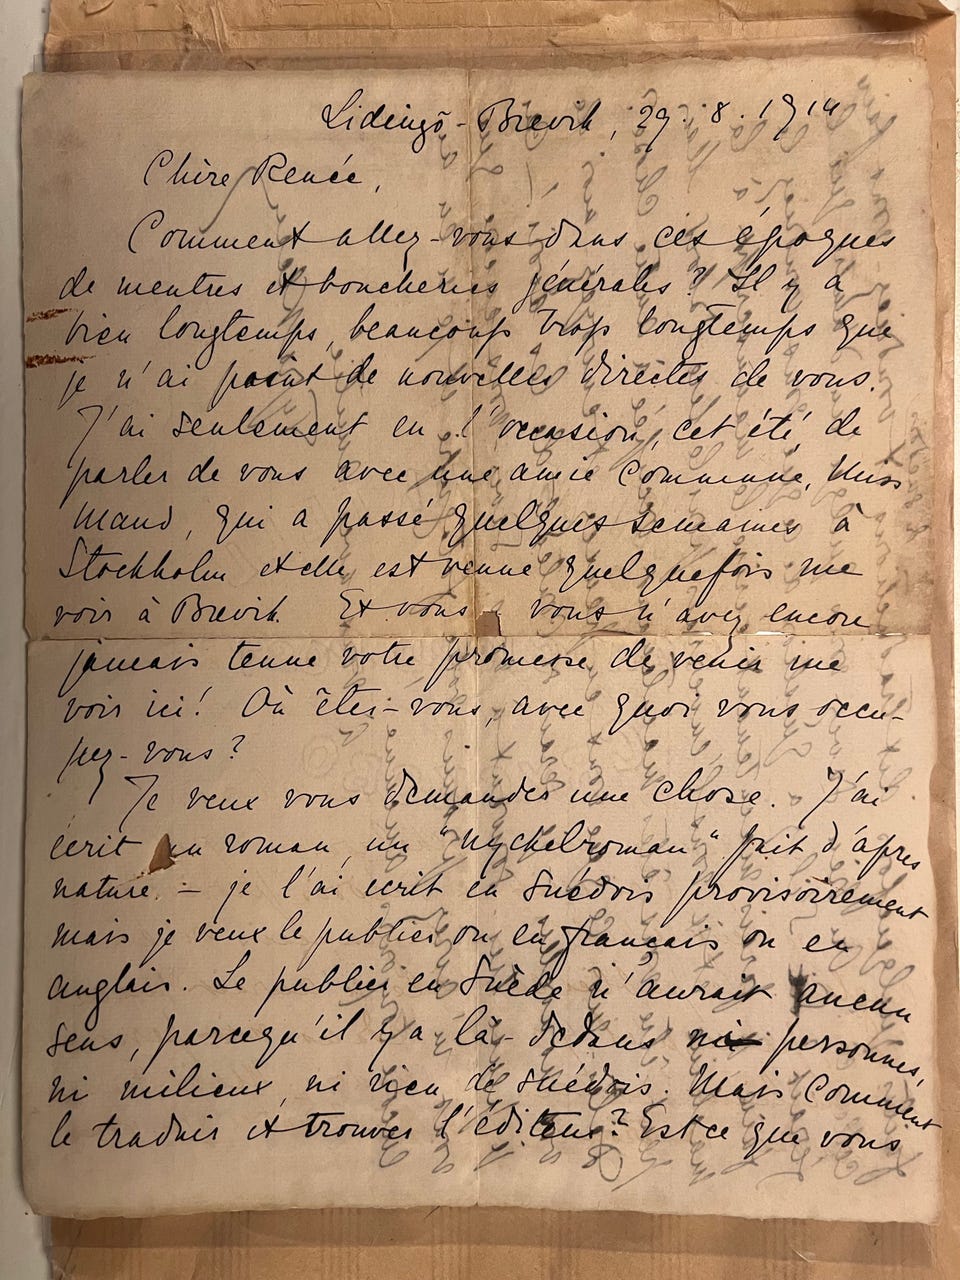 Lidingö-Brevik, 29.8.1914
Chère Renée,
Comment allez-vous dans ces époques
de meutres et boucheries générales? Il y a
bien longtemps, beaucoup trop longtemps que
je n'ai point de nouvelles directes de vous.
J'ai seulement eu l'occasion, cet été, de
parler de vous avec une amie commune, Miss
Maud, qui a passé quelques semaines à
Stockholm et elle est venue quelquefois me
voir à Brevik. Et vous, vous n'avez encore
jamais tenue votre promesse de venir me
voir ici! Où êtes-vous, avec quoi vous occu-
pez-vous?
Je veux vous demander une chose. J'ai
écrit un roman, un "nyckelroman" fait d'après
nature – je l'ai écrit en suédois provisoirement
mais je veux le publier ou en français ou en
anglais. Le publier en Suède n'aurait aucun
sens, parcequ'il y a là-dedans ni personnes,
ni milieux, ni rien de suédois. Mais comment
le traduir et trouver l'éditeur? Est ce que vous